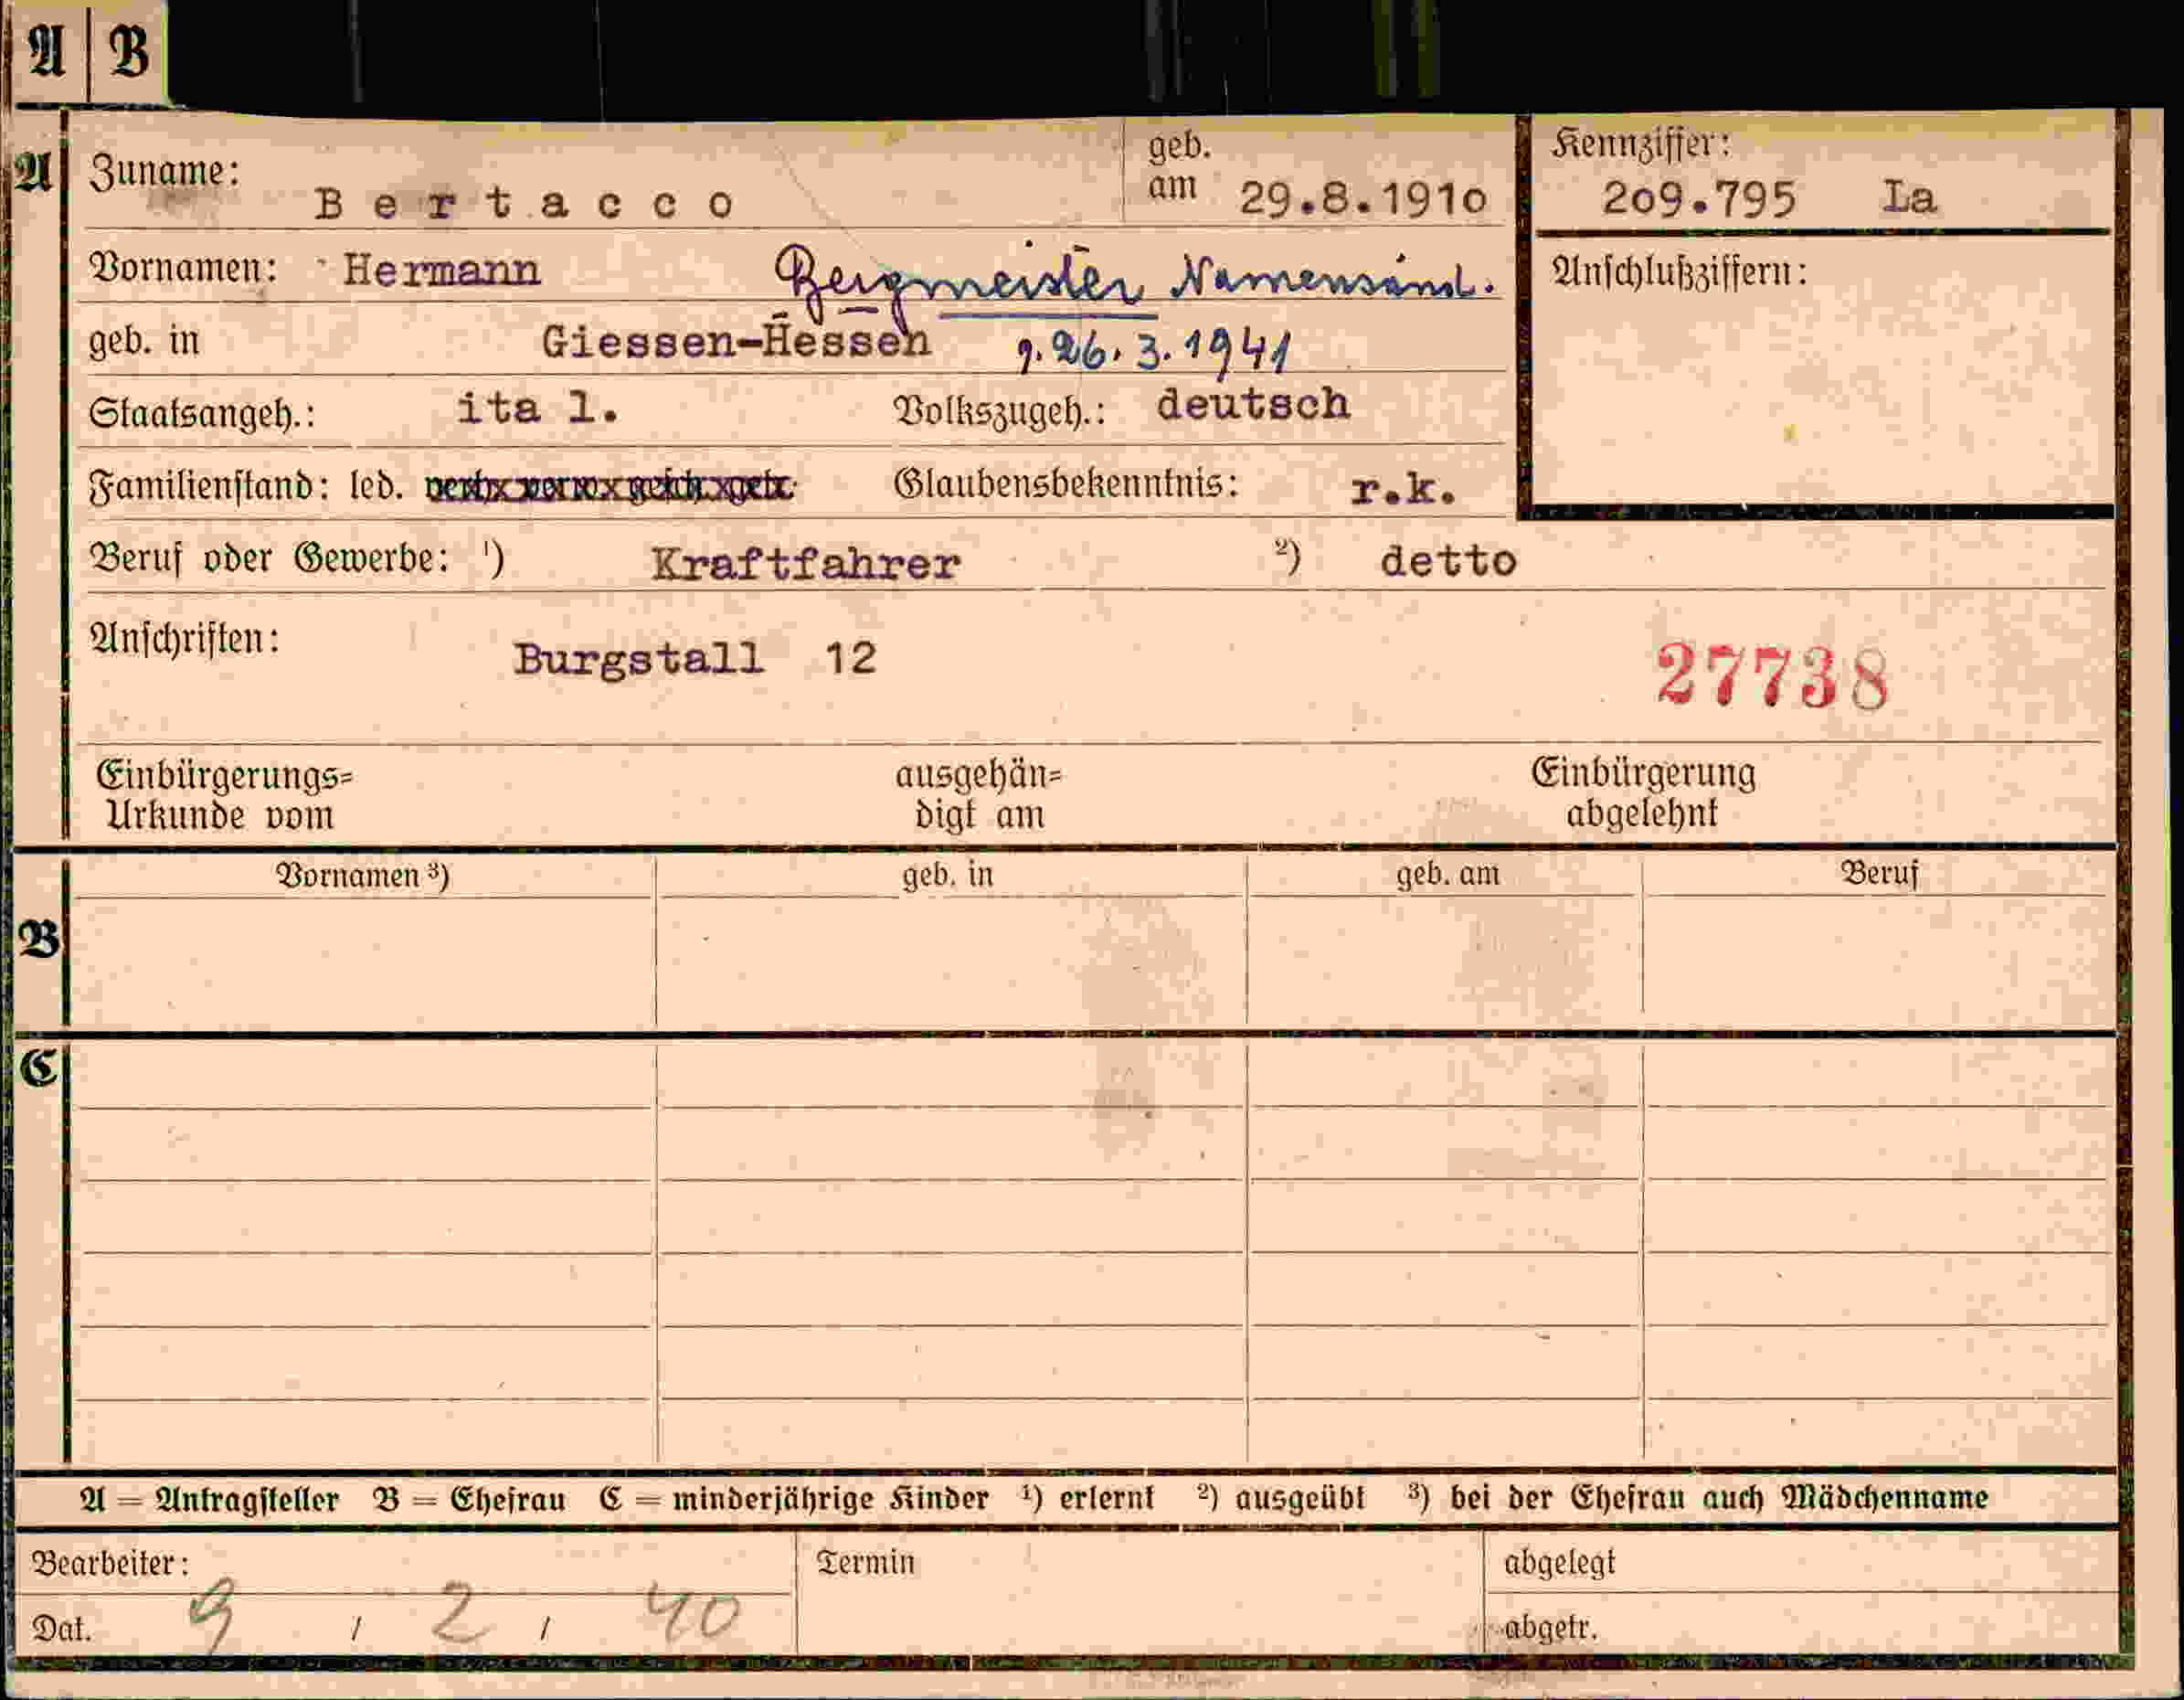 A B
A Zuname: Bertacco geb. am 29.8.1910 Kennziffer: 209.795 La
Vornamen: Hermann Bergmeister Namensänd. Anschlußziffern:
geb. in Giessen-Hessen g. 26.3.1941
Staatsangeh.: ital. Volkszugeh.: deutsch
Familienstand: led. verh. verw. gesch. getr. Glaubensbekenntnis: r.k.
Beruf oder Gewerbe: ¹) Kraftfahrer ²) detto
Anschriften: Burgstall 12 27738
Einbürgerungs= ausgehän= Einbürgerung
Urkunde vom digt am abgelehnt
Vornamen ³) geb. in geb. am Beruf
B
C
A = Antragsteller B = Ehefrau C = minderjährige Kinder ¹) erlernt ²) ausgeübt ³) bei der Ehefrau auch Mädchenname
Bearbeiter: Termin abgelegt
Dat. 9 / 2 / 40 abgetr.